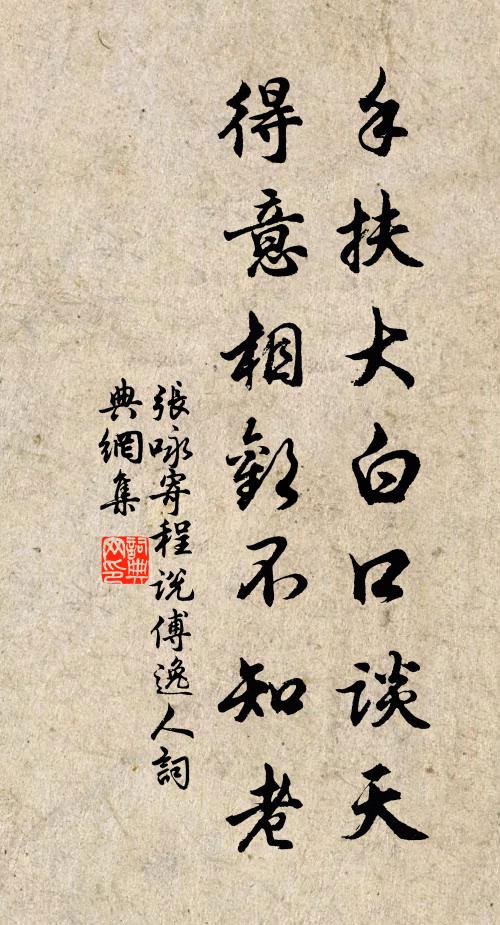 手扶大白口談天
得意相歡不知老
張咏寄程説傅逸人詞
典網集
詞典
网印